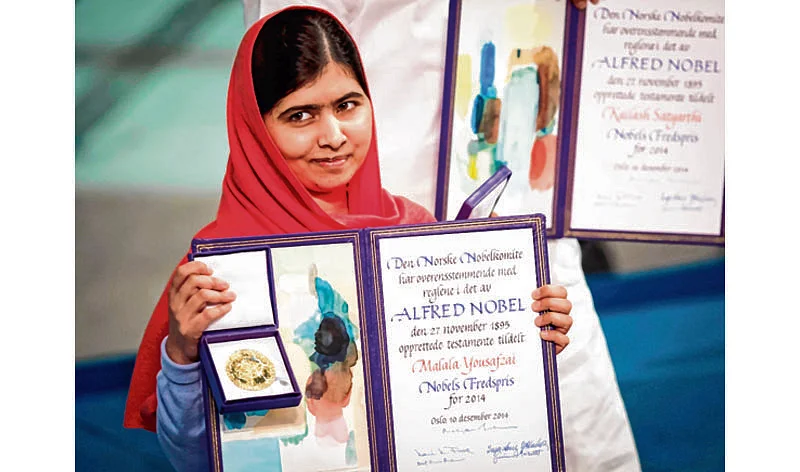 Den Norske Nobelkomite
har overensstemmende med
reglene i det av
ALFRED NOBEL
den 27. november 1895
opprettede testamente tildelt
Kailash Satyarthi
Nobels Fredspris
for 2014
Oslo, 10 desember 2014
Den Norske Nobelkomite
har overensstemmende med
reglene i det av
ALFRED NOBEL
den 27. november 1895
opprettede testamente tildelt
Malala Yousafzai
Nobels Fredspris
for 2014
Oslo, 10 desember 2014